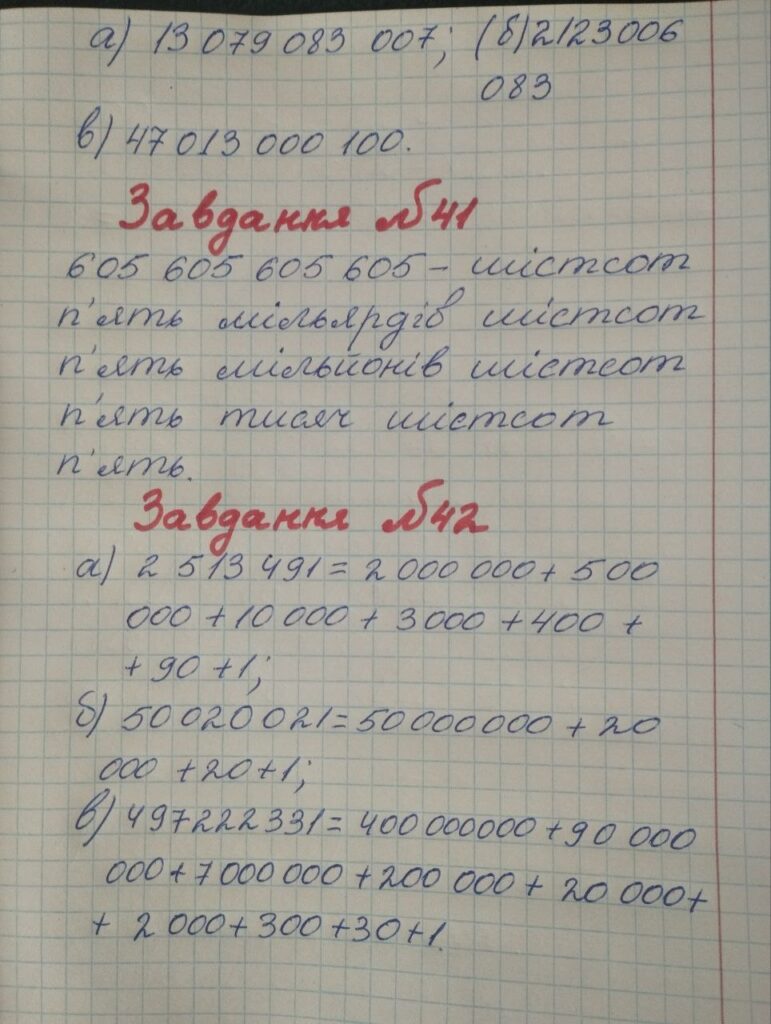 а) 13 079 083 007; (б) 2123006
083
в) 47 013 000 100.
Завдання №41
605 605 605 605 – шістсот
п'ять мільярдів шістсот
п'ять мільйонів шістсот
п'ять тисяч шістсот
п'ять.
Завдання №42
а) 2 513 491 = 2 000 000 + 500
000 + 10 000 + 3 000 + 400 +
+ 90 + 1;
б) 50 020 021 = 50 000 000 + 20
000 + 20 + 1;
в) 497 222 331 = 400 000 000 + 90 000
000 + 7 000 000 + 200 000 + 20 000 +
+ 2 000 + 300 + 30 + 1.